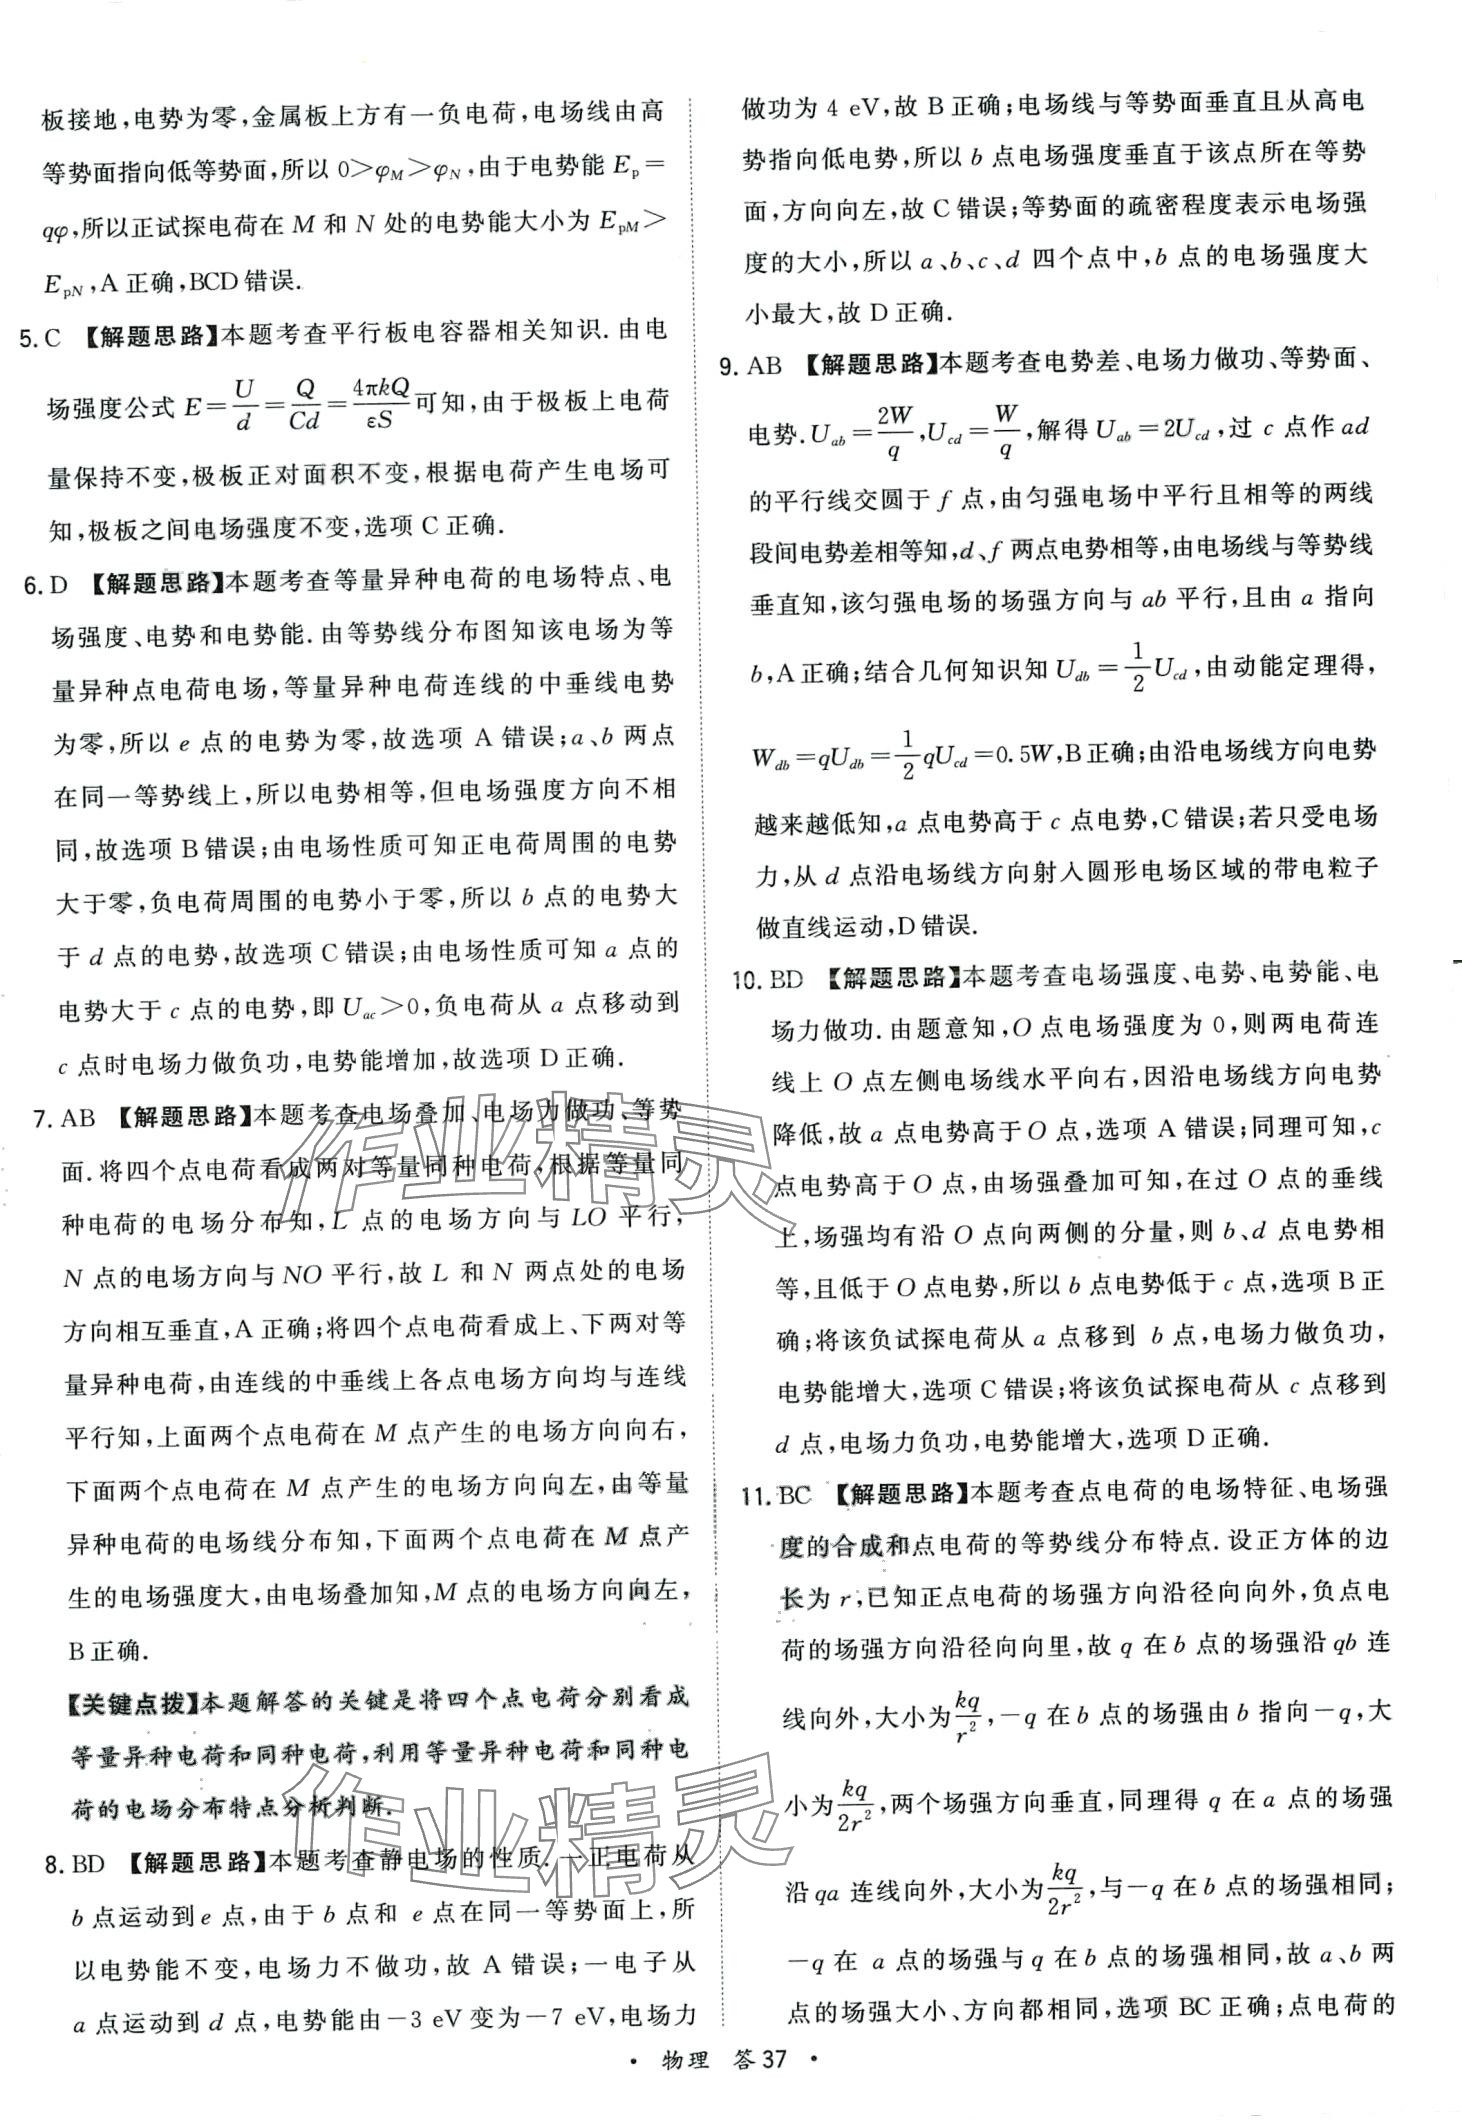 板接地,电势为零,金属板上方有一负电荷,电场线由高
等势面指向低等势面,所以 0>φ_M>φ_N,由于电势能 E_p=
qφ,所以正试探电荷在 M 和 N 处的电势能大小为 E_pM>
E_pN,A 正确,BCD错误.
5. C 【解题思路】本题考查平行板电容器相关知识.由电
场强度公式 E=U/d=Q/Cd=4πkQ/εS可知,由于极板上电荷
量保持不变,极板正对面积不变,根据电荷产生电场可
知,极板之间电场强度不变,选项 C 正确.
6. D 【解题思路】本题考查等量异种电荷的电场特点、电
场强度、电势和电势能.由等势线分布图知该电场为等
量异种点电荷电场,等量异种电荷连线的中垂线电势
为零,所以 e 点的电势为零,故选项 A 错误;a、b 两点
在同一等势线上,所以电势相等,但电场强度方向不相
同,故选项 B错误;由电场性质可知正电荷周围的电势
大于零,负电荷周围的电势小于零,所以 b 点的电势大
于 d 点的电势,故选项 C错误;由电场性质可知 a 点的
电势大于 c 点的电势,即 U_ac>0,负电荷从 a 点移动到
c 点时电场力做负功,电势能增加,故选项 D正确.
7. AB 【解题思路】本题考查电场叠加、电场力做功、等势
面.将四个点电荷看成两对等量同种电荷,根据等量同
种电荷的电场分布知,L 点的电场方向与 LO 平行,
N 点的电场方向与 NO 平行,故 L 和 N 两点处的电场
方向相互垂直,A 正确;将四个点电荷看成上、下两对等
量异种电荷,由连线的中垂线上各点电场方向均与连线
平行知,上面两个点电荷在 M 点产生的电场方向向右,
下面两个点电荷在 M 点产生的电场方向向左,由等量
异种电荷的电场线分布知,下面两个点电荷在 M 点产
生的电场强度大,由电场叠加知,M 点的电场方向向左,
B 正确.
【关键点拨】本题解答的关键是将四个点电荷分别看成
等量异种电荷和同种电荷,利用等量异种电荷和同种电
荷的电场分布特点分析判断.
8. BD 【解题思路】本题考查静电场的性质.一正电荷从
b 点运动到e 点,由于 b 点和 e 点在同一等势面上,所
以电势能不变,电场力不做功,故 A 错误;一电子从
a 点运动到 d 点,电势能由-3 eV变为-7 eV,电场力
做功为 4 eV,故 B正确;电场线与等势面垂直且从高电
势指向低电势,所以 b 点电场强度垂直于该点所在等势
面,方向向左,故 C错误;等势面的疏密程度表示电场强
度的大小,所以 a、b、c、d 四个点中,b 点的电场强度大
小最大,故 D正确.
9. AB 【解题思路】本题考查电势差、电场力做功、等势面、
电势.U_ab=2W/q,U_cd=W/q,解得 U_ab=2U_cd,过 c 点作 ad
的平行线交圆于 f 点,由匀强电场中平行且相等的两线
段间电势差相等知,d、f 两点电势相等,由电场线与等势线
垂直知,该匀强电场的场强方向与 ab 平行,且由 a 指向
b,A正确;结合几何知识知 U_db=1/2U_cd,由动能定理得,
W_db=qU_db=1/2qU_cd=0.5W,B正确;由沿电场线方向电势
越来越低知,a 点电势高于 c 点电势,C错误;若只受电场
力,从 d 点沿电场线方向射入圆形电场区域的带电粒子
做直线运动,D错误.
10. BD 【解题思路】本题考查电场强度、电势、电势能、电
场力做功.由题意知,O 点电场强度为 0,则两电荷连
线上 O 点左侧电场线水平向右,因沿电场线方向电势
降低,故 a 点电势高于 O 点,选项 A 错误;同理可知,c
点电势高于 O 点,由场强叠加可知,在过 O 点的垂线
上,场强均有沿 O 点向两侧的分量,则 b、d 点电势相
等,且低于 O 点电势,所以 b 点电势低于 c 点,选项 B正
确;将该负试探电荷从 a 点移到 b 点,电场力做负功,
电势能增大,选项 C错误;将该负试探电荷从 c 点移到
d 点,电场力负功,电势能增大,选项 D正确.
11. BC 【解题思路】本题考查点电荷的电场特征、电场强
度的合成和点电荷的等势线分布特点.设正方体的边
长为 r,已知正点电荷的场强方向沿径向向外,负点电
荷的场强方向沿径向向里,故 q 在 b 点的场强沿 qb 连
线向外,大小为kq/r²,-q 在 b 点的场强由 b 指向-q,大
小为kq/2r²,两个场强方向垂直,同理得 q 在 a 点的场强
沿 qa 连线向外,大小为kq/2r²,与-q 在 b 点的场强相同;
-q 在 a 点的场强与 q 在 b 点的场强相同,故 a、b 两
点的场强大小、方向都相同,选项 BC 正确;点电荷的
• 物理 答37 •
作业精灵
作业精灵